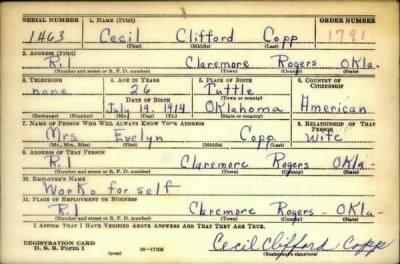 SERIAL NUMBER 1. NAME (Print) ORDER NUMBER
1463 Cecil Clifford Copp 1791
(First) (Middle) (Last)
2. ADDRESS (Print)
R.1 Claremore Rogers Okla.
(Number and street or R. F. D. number) (Town) (County) (State)
3. TELEPHONE 4. AGE IN YEARS 5. PLACE OF BIRTH 6. COUNTRY OF CITIZENSHIP
none 26 Tuttle
DATE OF BIRTH (Town or county)
July 19, 1914 Oklahoma American
(Exchange) (Number) (Mo.) (Day) (Yr.) (State or country)
7. NAME OF PERSON WHO WILL ALWAYS KNOW YOUR ADDRESS 8. RELATIONSHIP OF THAT PERSON
Mrs Evelyn Copp Wife
(Mr., Mrs., Miss) (First) (Middle) (Last)
9. ADDRESS OF THAT PERSON
R.1 Claremore Rogers Okla
(Number and street or R. F. D. number) (Town) (County) (State)
10. EMPLOYER'S NAME
Works for self
11. PLACE OF EMPLOYMENT OR BUSINESS
R.1 Claremore Rogers Okla.
(Number and street or R. F. D. number) (Town) (County) (State)
I AFFIRM THAT I HAVE VERIFIED ABOVE ANSWERS AND THAT THEY ARE TRUE.
REGISTRATION CARD
D. S. S. Form 1 (over) Cecil Clifford Copp